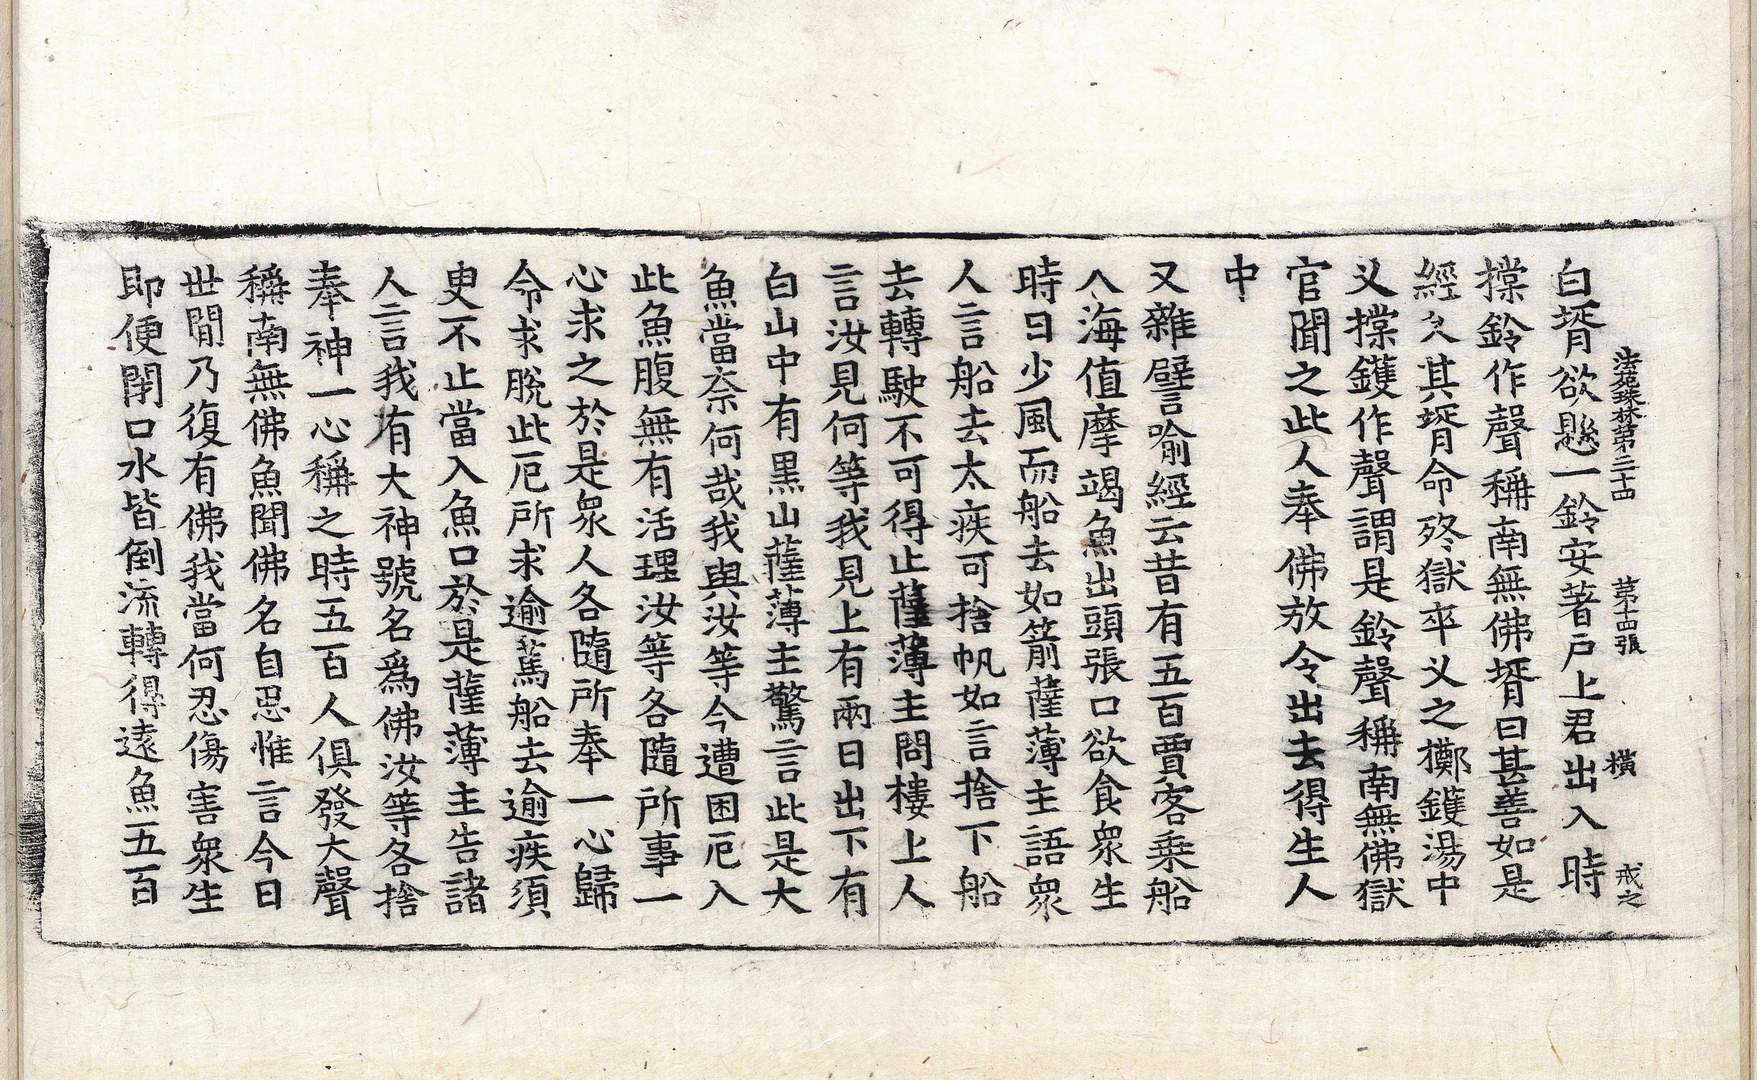 法苑珠林第三十四　第十四張　橫　戒之
白壻欲懸一鈴安著戸上君出入時
㨶鈴作聲稱南無佛壻曰甚善如是
經久其壻命終獄卒义之擲鑊湯中
义㨶鑊作聲謂是鈴聲稱南無佛獄
官聞之此人奉佛放令出去得生人
中
又雜譬喻經云昔有五百賈客乗船
入海值摩竭魚出頭張口欲食衆生
時日少風而船去如箭薩薄主語衆
人言船去太疾可捨帆如言捨下船
去轉駛不可得止薩薄主問樓上人
言汝見何等我見上有兩日出下有
白山中有黒山薩薄主驚言此是大
魚當奈何哉我與汝等今遭困厄入
此魚腹無有活理汝等各隨所事一
心求之於是衆人各隨所奉一心歸
令求脫此厄所求逾篤船去逾疾須
臾不止當入魚口於是薩薄主告諸
人言我有大神號名爲佛汝等各捨
奉神一心稱之時五百人俱發大聲
稱南無佛魚聞佛名自思惟言今日
世間乃復有佛我當何忍傷害衆生
即便閉口水皆倒流轉得遠魚五百